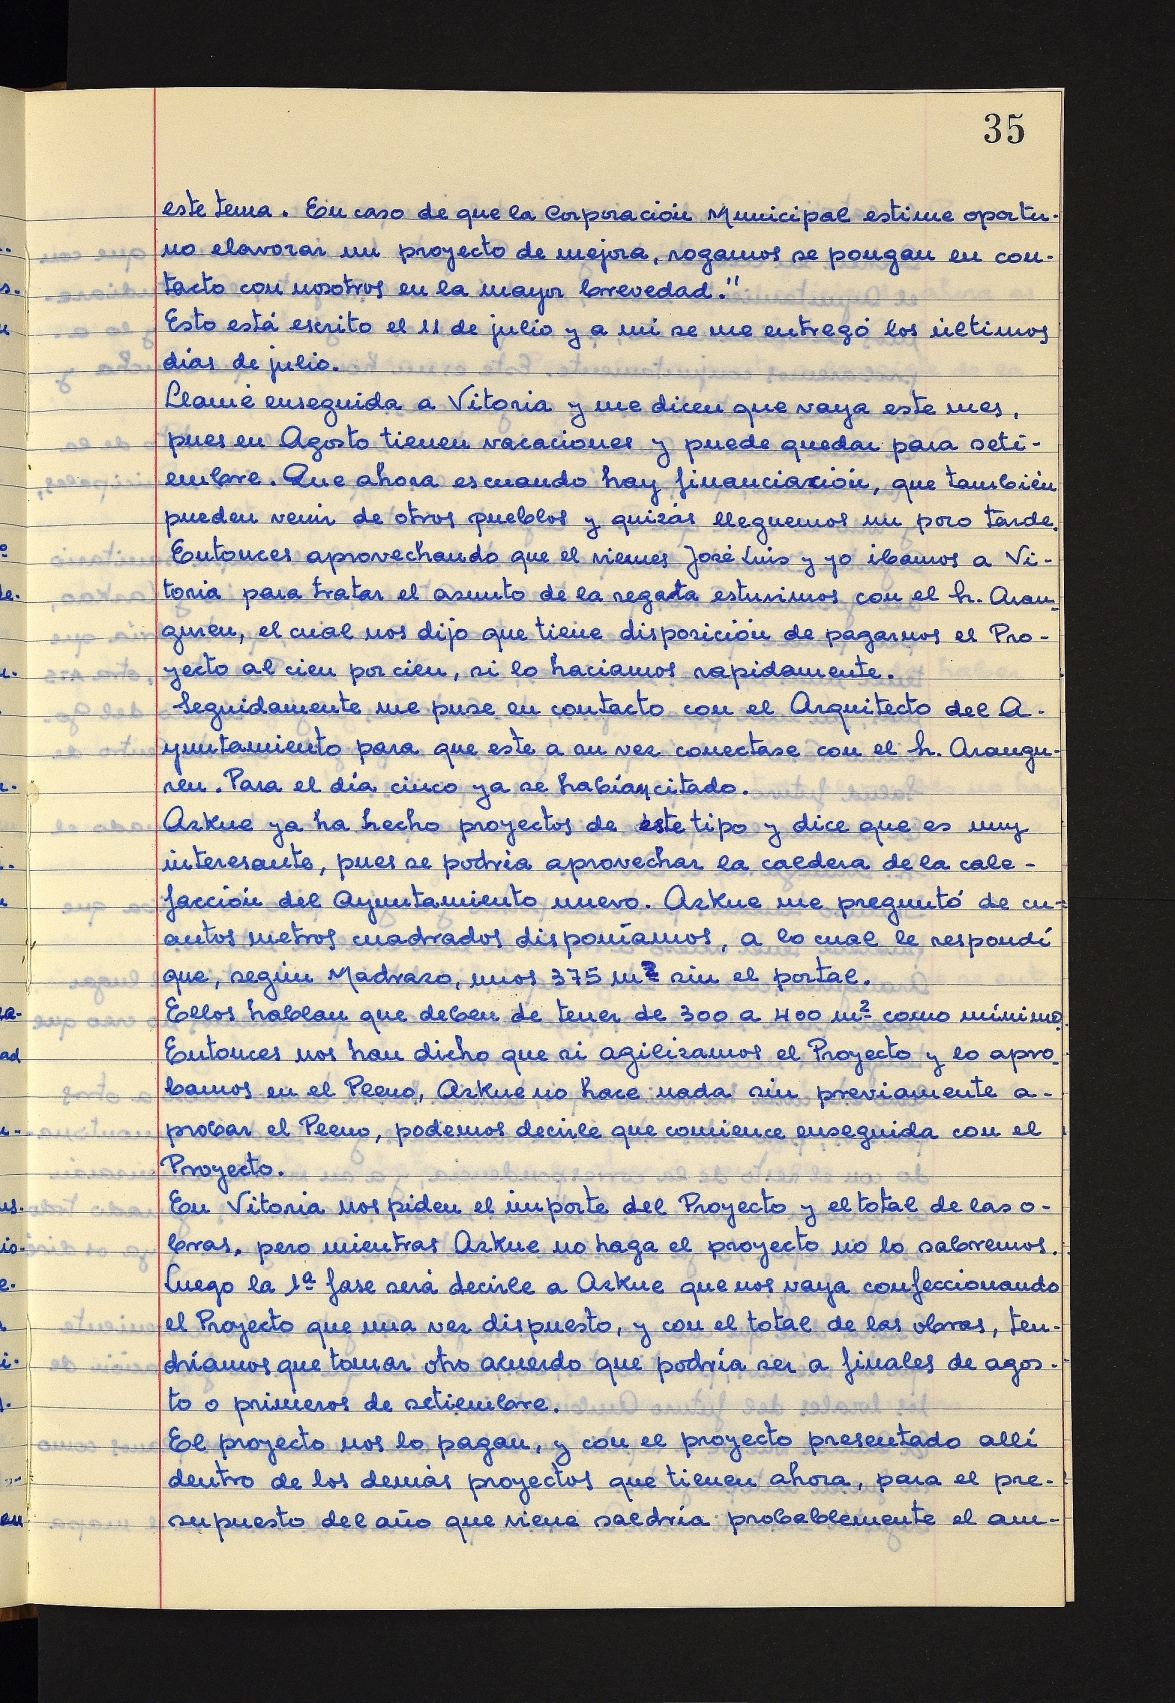 35
este tema. En caso de que la Corporación Municipal estime oportu-
no elavorar un proyecto de mejora, rogamos se pongan en con-
tacto con nosotros en la mayor brevedad."
Esto está escrito el 11 de julio y a mí se me entregó los últimos
días de julio.
Llamé enseguida a Vitoria y me dicen que vaya este mes,
pues en Agosto tienen vacaciones y puede quedar para seti-
embre. Que ahora es cuando hay financiación, que también
pueden venir de otros pueblos y quizás lleguemos un poco tarde.
Entonces aprovechando que el viernes José Luis y yo íbamos a Vi-
toria para tratar el asunto de la regata estuvimos con el Sr. Aran-
guren, el cual nos dijo que tiene disposición de pagarnos el Pro-
yecto al cien por cien, si lo hacíamos rapidamente.
Seguidamente me puse en contacto con el Arquitecto del A-
yuntamiento para que este a su vez conectase con el Sr. Arangu-
ren. Para el día cinco ya se habían citado.
Azkue ya ha hecho proyectos de este tipo y dice que es muy
interesante, pues se podría aprovechar la caldera de la cale-
facción del Ayuntamiento nuevo. Azkue me preguntó de cu-
antos metros cuadrados disponíamos, a lo cual le respondí
que, según Madrazo, unos 375 m² sin el portal.
Ellos hablan que deben de tener de 300 a 400 m² como mínimo.
Entonces nos han dicho que si agilizamos el Proyecto y lo apro-
bamos en el Pleno, Azkue no hace nada sin previamente a-
probar el Pleno, podemos decirle que comience enseguida con el
Proyecto.
En Vitoria nos piden el importe del Proyecto y el total de las o-
bras, pero mientras Azkue no haga el proyecto no lo sabremos.
Luego la 1ª fase será decirle a Azkue que nos vaya confeccionando
el Proyecto que una vez dispuesto, y con el total de las obras, ten-
dríamos que tomar otro acuerdo que podría ser a finales de agos-
to o primeros de setiembre.
El proyecto nos lo pagan, y con el proyecto presentado allí
dentro de los demás proyectos que tienen ahora, para el pre-
supuesto del año que viene saldría probablemente el am-